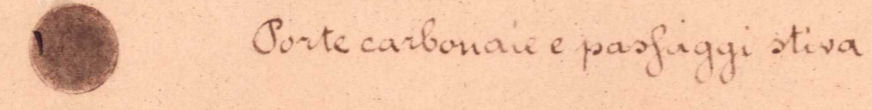 Porte carbonaie e passaggi stiva